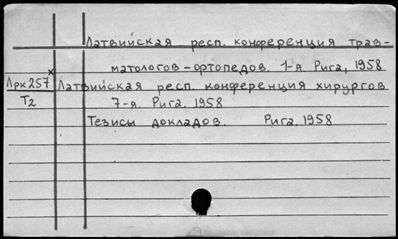 Латвийская респ. конференция трав-
матологов-ортопедов. 1-я. Рига, 1958
Лрк257 х Латвийская респ. конференция хирургов
Т2 7-я. Рига. 1958
Тезисы докладов. Рига. 1958